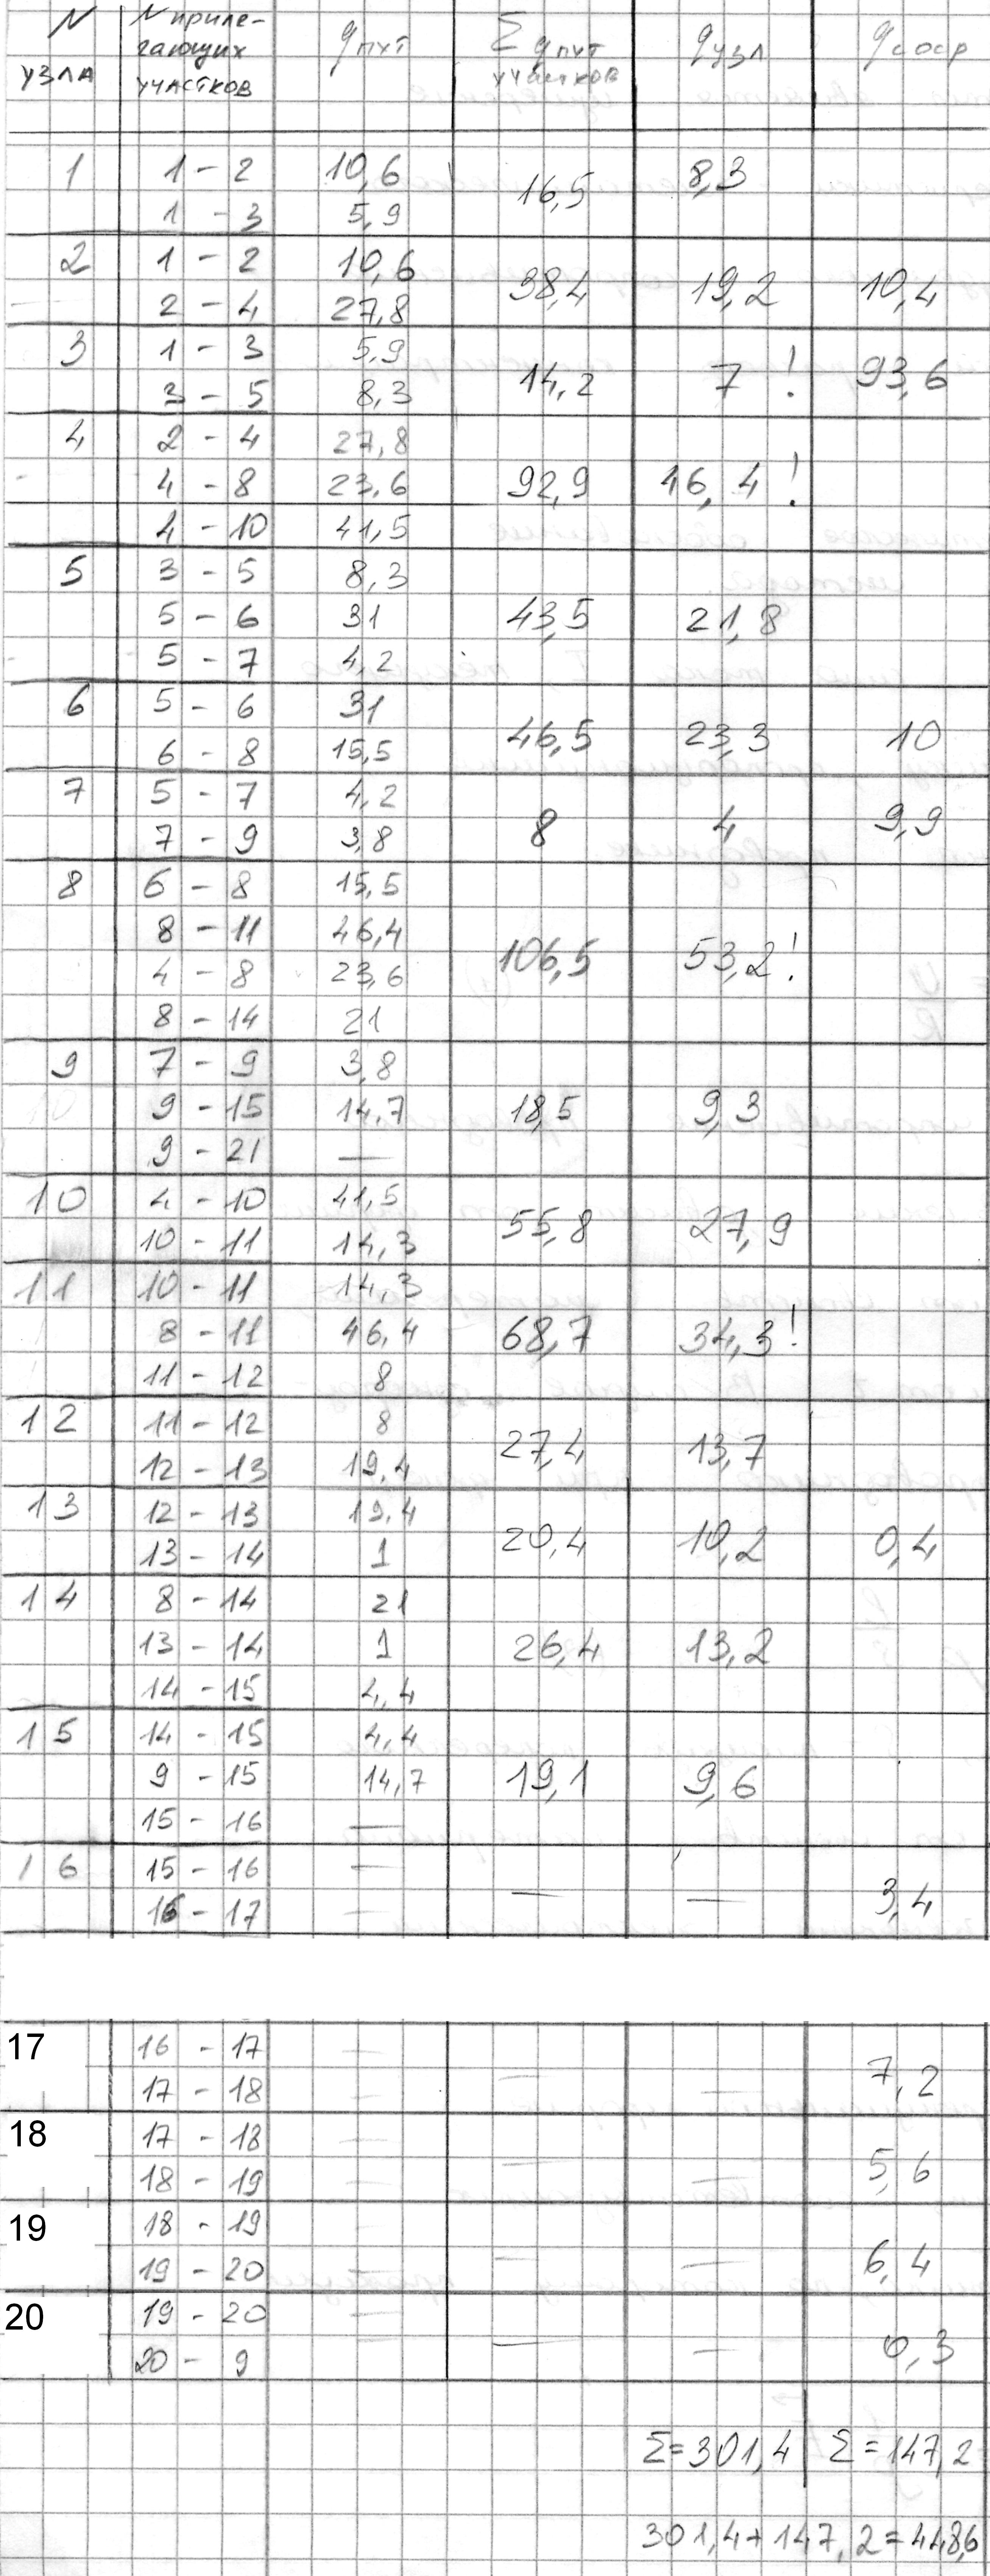 N узла N прилегающих участков q пут Σ q пут участков q узл q соср
1 1 - 2 10,6 16,5 8,3
1 - 3 5,9
2 1 - 2 10,6 38,4 19,2 10,4
2 - 4 27,8
3 1 - 3 5,9 14,2 7 ! 93,6
3 - 5 8,3
4 2 - 4 27,8
4 - 8 23,6 92,9 46,4 !
4 - 10 41,5
5 3 - 5 8,3
5 - 6 31 43,5 21,8
5 - 7 4,2
6 5 - 6 31 46,5 23,3 10
6 - 8 15,5
7 5 - 7 4,2 8 4 9,9
7 - 9 3,8
8 6 - 8 15,5
8 - 11 46,4 106,5 53,2 !
4 - 8 23,6
8 - 14 21
9 7 - 9 3,8
9 - 15 14,7 18,5 9,3
9 - 21 —
10 4 - 10 41,5 55,8 27,9
10 - 11 14,3
11 10 - 11 14,3
8 - 11 46,4 68,7 34,3 !
11 - 12 8
12 11 - 12 8 27,4 13,7
12 - 13 19,4
13 12 - 13 19,4 20,4 10,2 0,4
13 - 14 1
14 8 - 14 21
13 - 14 1 26,4 13,2
14 - 15 4,4
15 14 - 15 4,4
9 - 15 14,7 19,1 9,6
15 - 16 —
16 15 - 16 — — — 3,4
16 - 17 —
17 16 - 17 — — — 7,2
17 - 18 —
18 17 - 18 — — — 5,6
18 - 19 —
19 18 - 19 — — — 6,4
19 - 20 —
20 19 - 20 — — — 0,3
20 - 9 —
Σ = 301,4 Σ = 147,2
301,4 + 147,2 = 448,6